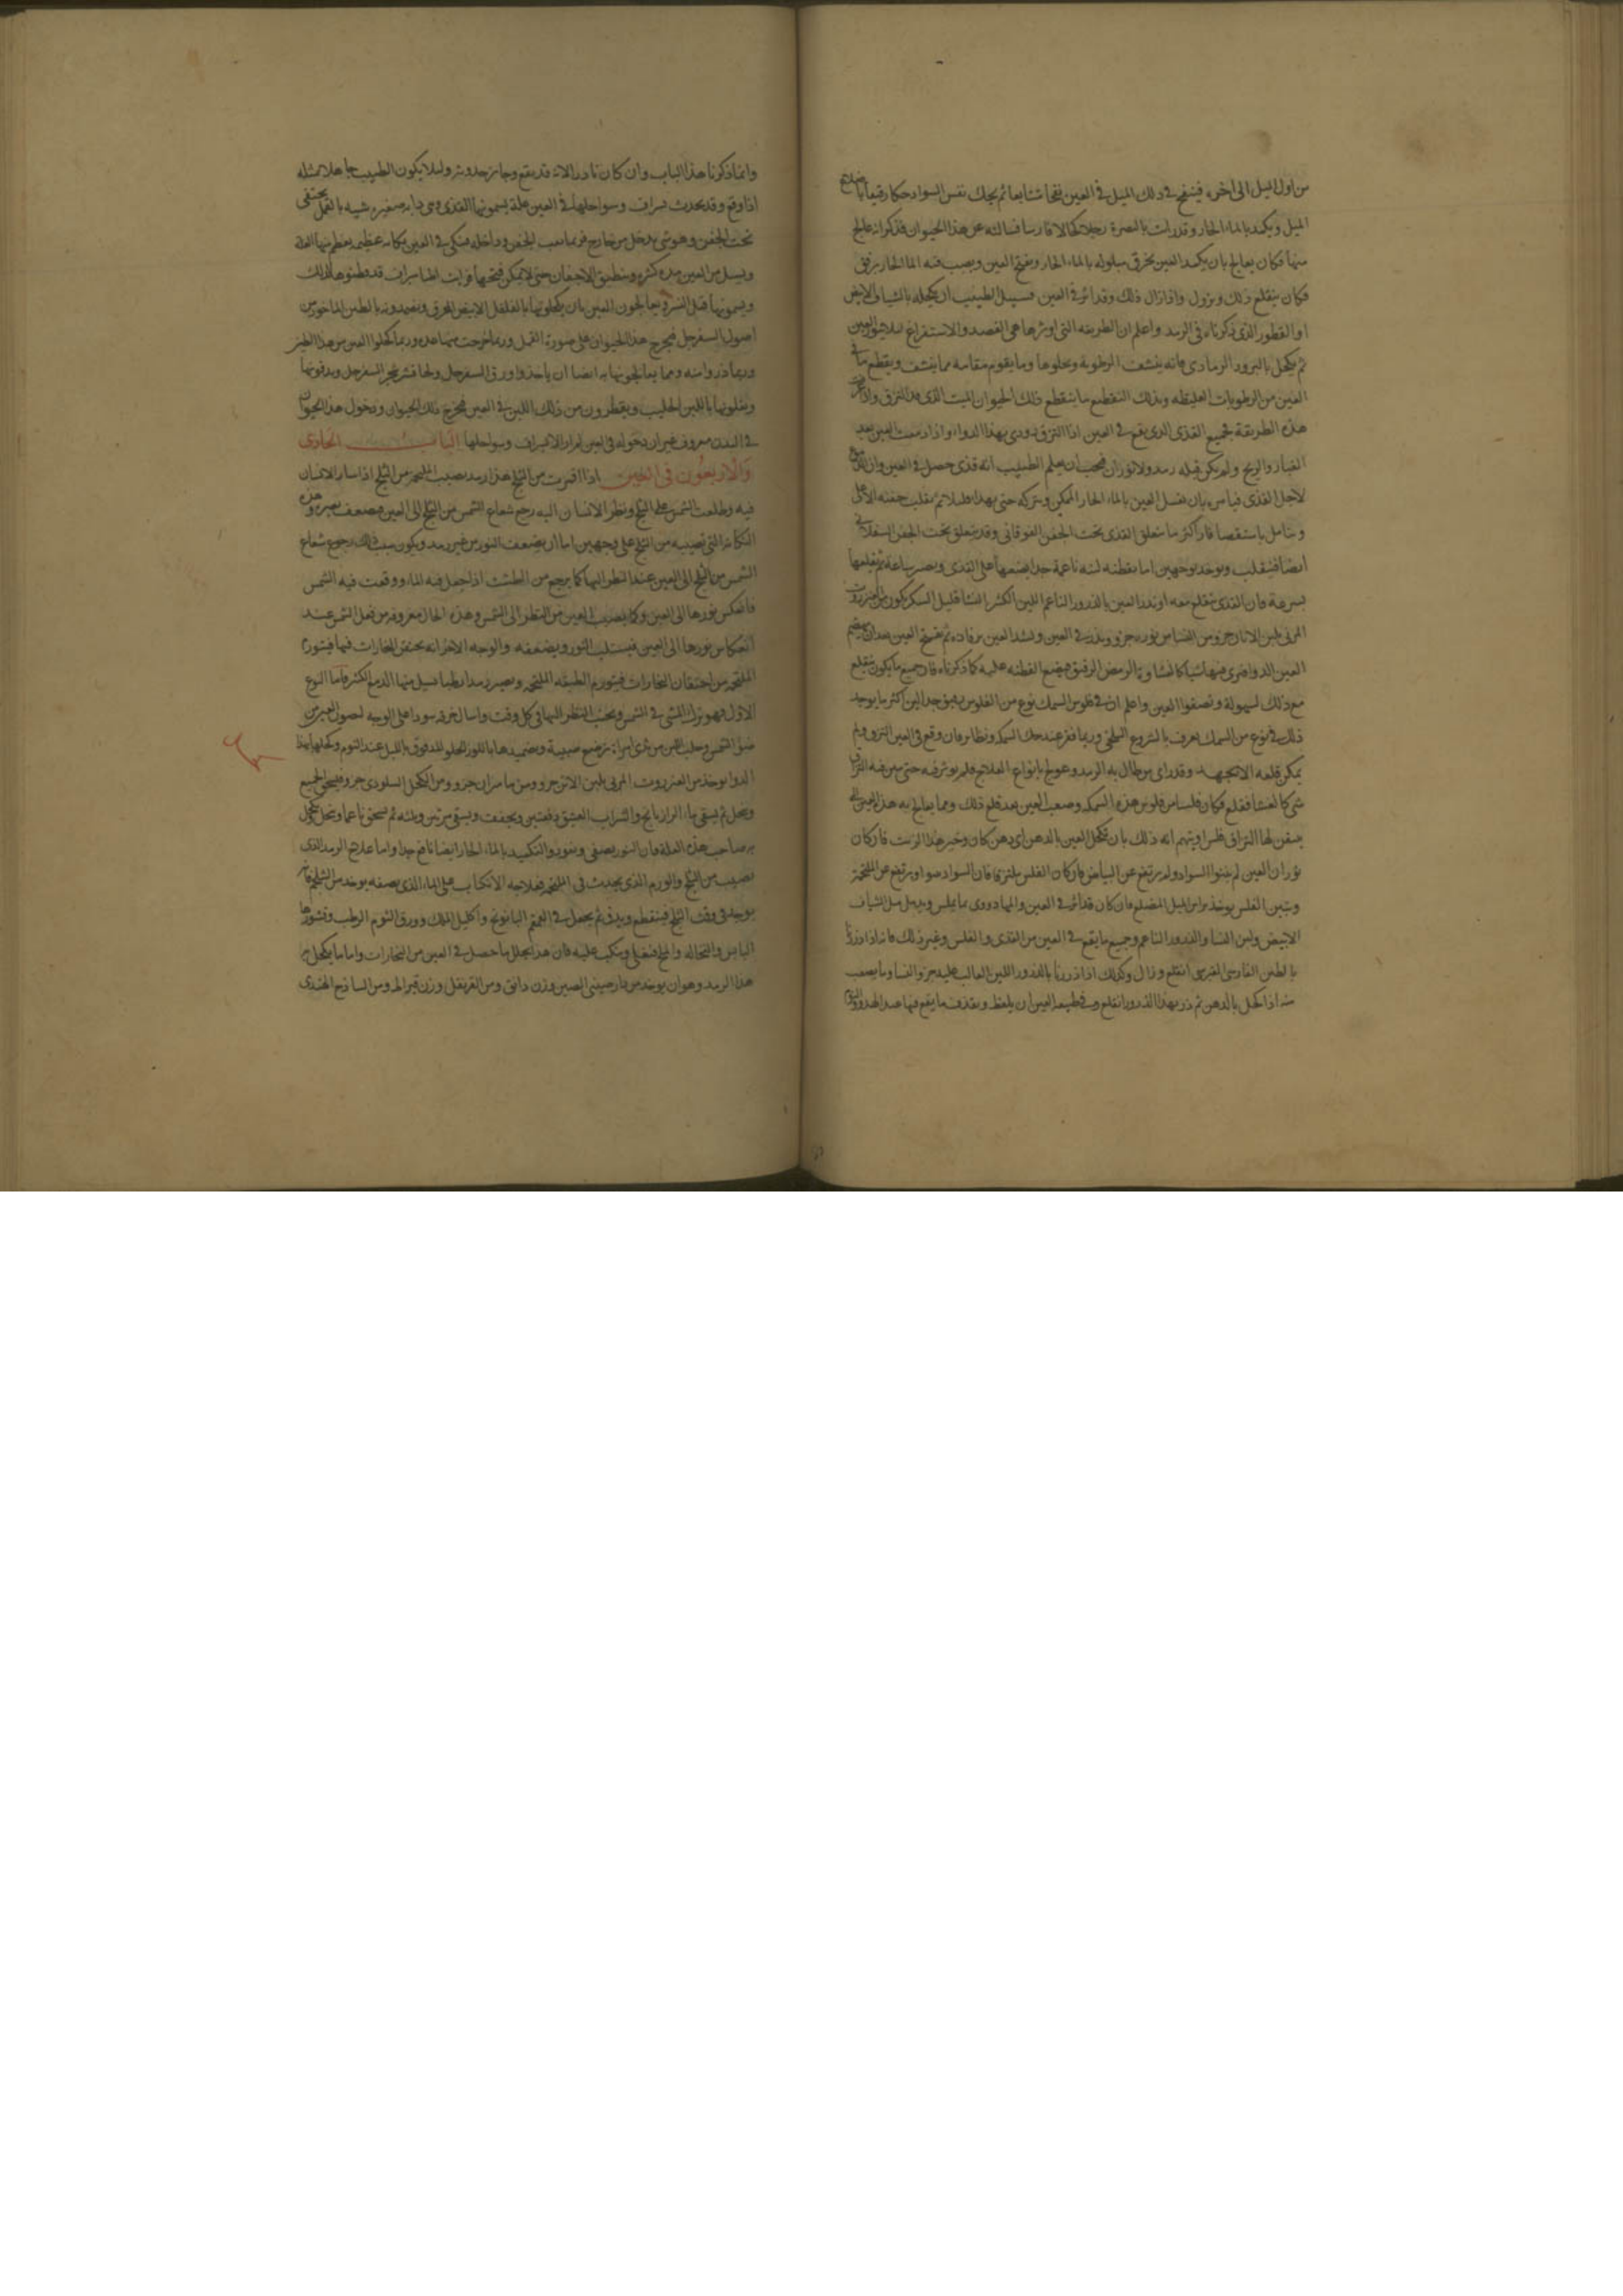 من اول الميل الى اخره فينفخ في ذلك الميل في العين نفخا متتابعا ثم يحك نفس السواد حكا رقيقا باضلاع
الميل ويكمد بالماء الحار وقد رايت بالبصرة رجلا كحالا فارسا فسالته عن هذا الحيوان فذكر انه عالج
منها فكان يعالج بان يكمد العين بخرق مبلولة بالماء الحار ويفتح العين ويصب فيه الما الحار برفق
فكان ينقلع ذلك ويزول واذا زال ذلك وقد اثر في العين فسبيل الطبيب ان يكحله بالشياف الابيض
او القطور الذي ذكرناه في الرمد واعلم ان الطريقه التي اوثرها هي الفصد والاستفراغ لئلا العين
ثم يكحل بالبرود الرمادي فانه ينشف الرطوبة ويجلوها وما يقوم مقامه مما ينشف ويقطع ما في
العين من الرطوبات الغليظه وبذلك التقطيع ما ينقطع ذلك الحيوان الميت الذي قد التزق
هذه الطريقة لجميع القذى الذي يقع في العين اذا التزق دووي بهذا الدواء واذا دمعت العين بعد
الغبار والريح ولم يكن قبله رمد ولا ثوران فيجب ان يعلم الطبيب انه قذى حصل في العين وان
لاجل القذى قياس بان تغسل العين بالماء الحار الممكن ويتركه حتى يهدا قليلا ثم يقلب جفنه الاعلى
ويتامل باستقصا فان اكثر ما يتعلق القذى تحت الجفن الفوقاني وقد يتعلق تحت الجفن السفلاني
ايضا فينقلب ويوخذ بوجهين اما بقطنه لينه ناعمة جدا يضعها على القذى ويصبر ساعة ثم يقلعها
بسرعة فان القذى ينقلع معه او يذر العين بالذرور الناعم اللين الكثير النشا قليل السكر يكون من العنزروت
المربى بلبن الاتان جزو ومن النشا جزو ويذر في العين ويشد العين برفاده ثم يفتح العين بعد ان يهضم
العين الدوا فترى فيها شيا كالغشاوة الرمص الرقيق فيضع القطنه عليه كما ذكرناه فان جميع ما يكون ينقلع
مع ذلك بسهولة وتصفوا العين واعلم ان في فلوس السمك نوع من الفلوس رقيق جدا لين اكثر ما يوجد
ذلك في نوع من السمك يعرف بالشروع البلطي وربما قفز عند حك السمكه وتطاير فان وقع في العين التزق ولم
يمكن قلعه الا بجهد وقد راى من طال به الرمد وعولج بانواع العلاج فلم يوثر فيه حتى تبين فيه التزاق
شي كالغشا فقلع فكان فلسا من فلوس هذه السمكه وصعب العين بعد قلع ذلك ومما يعالج به هذا العين التي
يتيقن لها التزاق فلس او يتهم انه ذلك بان تكحل العين بالدهن اي دهن كان وخير هذا الزيت فان كان
ثوران العين لم ينبوا السواد ولم يرتفع عن البياض فان كان الفلس ملتزقا فان السواد ينبوا ويرتفع عن الملتحمة
ويتبين الفلس يوخذ براس الميل المضلع فان كان قد اثر في العين والمها دووي بما يملس ويدمل مثل الشياف
الابيض ولبن النسا والذرور الناعم وجميع ما يقع في العين من القذى والفلس وغير ذلك فانه اذا ذر
بالطين الفارسي الفيرى انقلع وزال وكذلك اذا ذررنا بالذرور اللين الغالب عليه جزو النشا وما يصعب
منه اذا كحل بالدهن ثم ذر بهذا الذرور انقلع وفي طبيعة العين ان يلفظ ويقذف ما يقع فيها عند الهدو والنوم
وانما ذكرنا هذا الباب وان كان نادرا لانه قد يقع وجايز حدوثه ولئلا يكون الطبيب جاهلا بمثله
اذا وقع وقد يحدث بسراف وسواحلها في العين علة يسمونها القذى وهي دابه صغيره شبيه بالقمل يختفي
تحت الجفن وهو شي يدخل من خارج فربما ثقب الجفن وداخله فنكي في العين نكايه عظيمه يعظم بها العلة
ويسيل من العين مدة كثيره وينطبق الاجفان حتى لا يمكن فتحها فرايت اطبا سراف قد فطنوا لذلك
ويسمونها قمل النسر ويعالجون العين بان يكحلونها بالفلفل الابيض المحرق ويضمدونه بالطين الماخوذ من
اصول السفرجل فيخرج هذا الحيوان على صورة القمل وربما خرجت ميتا هذه وربما كحلوا العين من هذا الطين
وربما ذروا منه ومما يعالجونها به ايضا ان ياخذوا ورق السفرجل ولحا قشر شجر السفرجل ويدقونها
ويغلونها باللبن الحليب ويقطرون من ذلك اللبن في العين فيخرج ذلك الحيوان ودخول هذا الحيوان
في البدن معروف غير ان دخوله في العين لم ار الا بسراف وسواحلها الباب الحادي
والاربعون في العين اذا اقمرت من الثلج هذا رمد يصيب الملتحمه من الثلج اذا سار الانسان
فيه وطلعت الشمس على الثلج ونظر الانسان اليه رجع شعاع الشمس من الثلج الى العين فيضعف بصره وهذه
النكايه التي تصيبه من الثلج على وجهين اما ان يضعف النور من غير رمد ويكون سبب ذلك رجوع شعاع
الشمس من الثلج الى العين عند النظر اليها كما يرجع من الطشت اذا جعل فيه الماء ووقعت فيه الشمس
فانعكس نورها الى العين وكما يصيب العين من النظر الى الشمس وهذه الحال معروفه من فعل الشمس عند
انعكاس نورها الى العين فيستلب النور ويضعفه والوجه الاخر انه يحتقن البخارات فيها فيتورم
الملتحمه من احتقان البخارات فيتورم الطبقه الملتحمه ويصير رمدا رطبا تسيل منها الدمع الكثير فاما النوع
الاول فهو ترك المشي في الشمس وتجنب النظر اليها في كل وقت واسبال خرقه سودا على الوجه لصون العين من
ضوء الشمس وحلب اللبن من ثدي امراة ترضع صبيه وتضميدها باللوز الحلو المدقوق بالليل عند النوم وكحلها بهذا
الدوا يوخذ من العنزروت المربى بلبن الاتن جزو ومن ماميران جزو ومن الكحل السلودي جزو فيسحق الجميع
وينخل ثم يسقى ماء الرازيانج والشراب العتيق دفعتين ويجفف ويسقى مرتين وثلثه ثم يسحق ناعما وينخل يكحل
به صاحب هذه العلة فان النور يصفى وينور والتكميد بالماء الحار ايضا نافع جدا واما علاج الرمد الذي
يصيب من الثلج والورم الذي يحدث في الملتحمه فعلاجه الانكباب على الماء الذي يصفه يوخذ من الشلجم فانه
يوجد في وقت الثلج فيتقطع ويدق ثم يجعل في القمقم البابونج واكليل الملك وورق الثوم الرطب وقشورها
اليابس والنخاله والملح فيغلى وينكب عليه فان هذا يحلل ما حصل في العين من البخارات واما ما يكحل به
هذا الرمد وهو ان يوخذ من دارصيني الصين وزن دانق ومن القرنفل وزن قيراط ومن الساذج الهندي